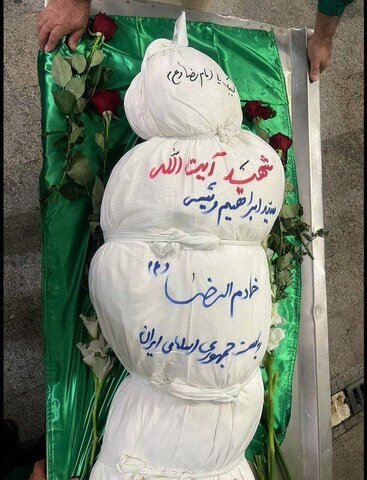 لبیک یا امام رضا (ع)
شهید آیت الله
سید ابراهیم رئیسی
خادم الرضا (ع)
جمهوری اسلامی ایران